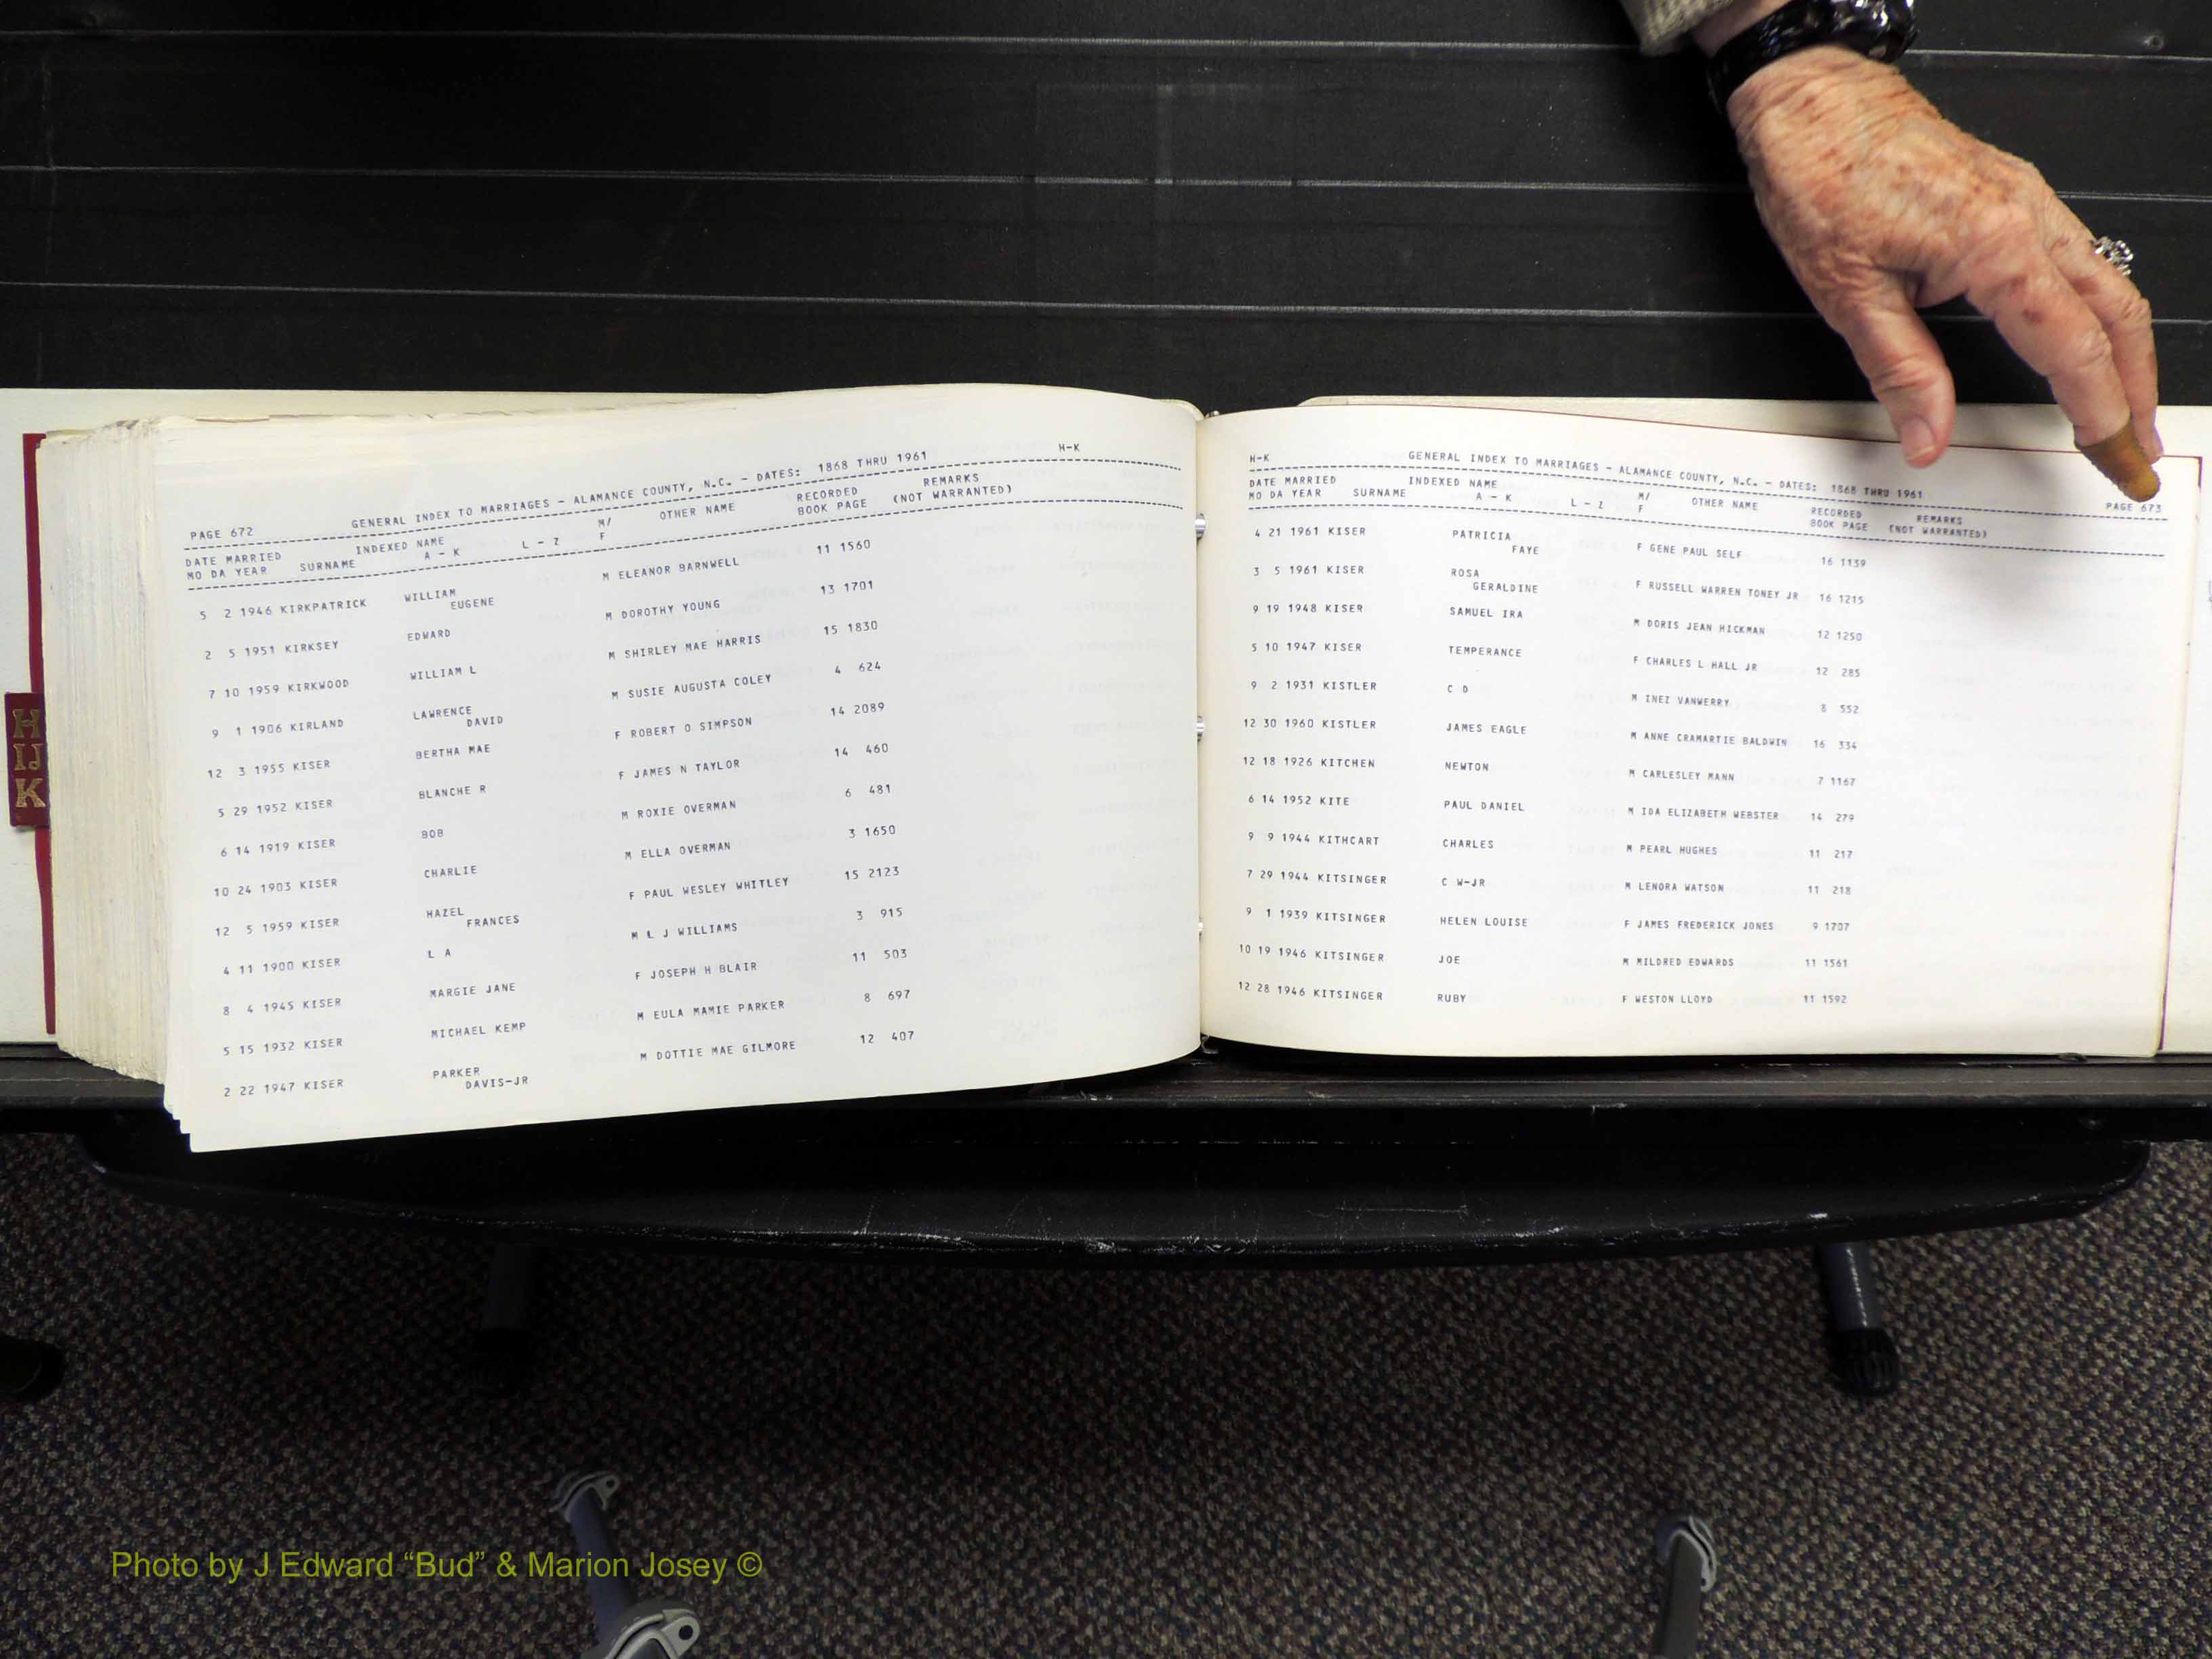 H
IJ
K
PAGE 672 GENERAL INDEX TO MARRIAGES - ALAMANCE COUNTY, N.C. - DATES: 1868 THRU 1961 H-K
DATE MARRIED INDEXED NAME M/ OTHER NAME RECORDED REMARKS
MO DA YEAR SURNAME A - K L - Z F BOOK PAGE (NOT WARRANTED)
5 2 1946 KIRKPATRICK WILLIAM M ELEANOR BARNWELL 11 1560
EUGENE
2 5 1951 KIRKSEY EDWARD M DOROTHY YOUNG 13 1701
7 10 1959 KIRKWOOD WILLIAM L M SHIRLEY MAE HARRIS 15 1830
9 1 1906 KIRLAND LAWRENCE M SUSIE AUGUSTA COLEY 4 624
DAVID
12 3 1955 KISER BERTHA MAE F ROBERT O SIMPSON 14 2089
5 29 1952 KISER BLANCHE R F JAMES N TAYLOR 14 460
6 14 1919 KISER BOB M ROXIE OVERMAN 6 481
10 24 1903 KISER CHARLIE M ELLA OVERMAN 3 1650
12 5 1959 KISER HAZEL F PAUL WESLEY WHITLEY 15 2123
FRANCES
4 11 1900 KISER L A M L J WILLIAMS 3 915
8 4 1945 KISER MARGIE JANE F JOSEPH H BLAIR 11 503
5 15 1932 KISER MICHAEL KEMP M EULA MAMIE PARKER 8 697
2 22 1947 KISER PARKER M DOTTIE MAE GILMORE 12 407
DAVIS-JR
H-K GENERAL INDEX TO MARRIAGES - ALAMANCE COUNTY, N.C. - DATES: 1868 THRU 1961 PAGE 673
DATE MARRIED INDEXED NAME M/ OTHER NAME RECORDED REMARKS
MO DA YEAR SURNAME A - K L - Z F BOOK PAGE (NOT WARRANTED)
4 21 1961 KISER PATRICIA F GENE PAUL SELF 16 1139
FAYE
3 5 1961 KISER ROSA F RUSSELL WARREN TONEY JR 16 1215
GERALDINE
9 19 1948 KISER SAMUEL IRA M DORIS JEAN HICKMAN 12 1250
5 10 1947 KISER TEMPERANCE F CHARLES L HALL JR 12 285
9 2 1931 KISTLER C D M INEZ VANWERRY 8 552
12 30 1960 KISTLER JAMES EAGLE M ANNE CRAMARTIE BALDWIN 16 334
12 18 1926 KITCHEN NEWTON M CARLESLEY MANN 7 1167
6 14 1952 KITE PAUL DANIEL M IDA ELIZABETH WEBSTER 14 279
9 9 1944 KITHCART CHARLES M PEARL HUGHES 11 217
7 29 1944 KITSINGER C W-JR M LENORA WATSON 11 218
9 1 1939 KITSINGER HELEN LOUISE F JAMES FREDERICK JONES 9 1707
10 19 1946 KITSINGER JOE M MILDRED EDWARDS 11 1561
12 28 1946 KITSINGER RUBY F WESTON LLOYD 11 1592
Photo by J Edward “Bud” & Marion Josey ©